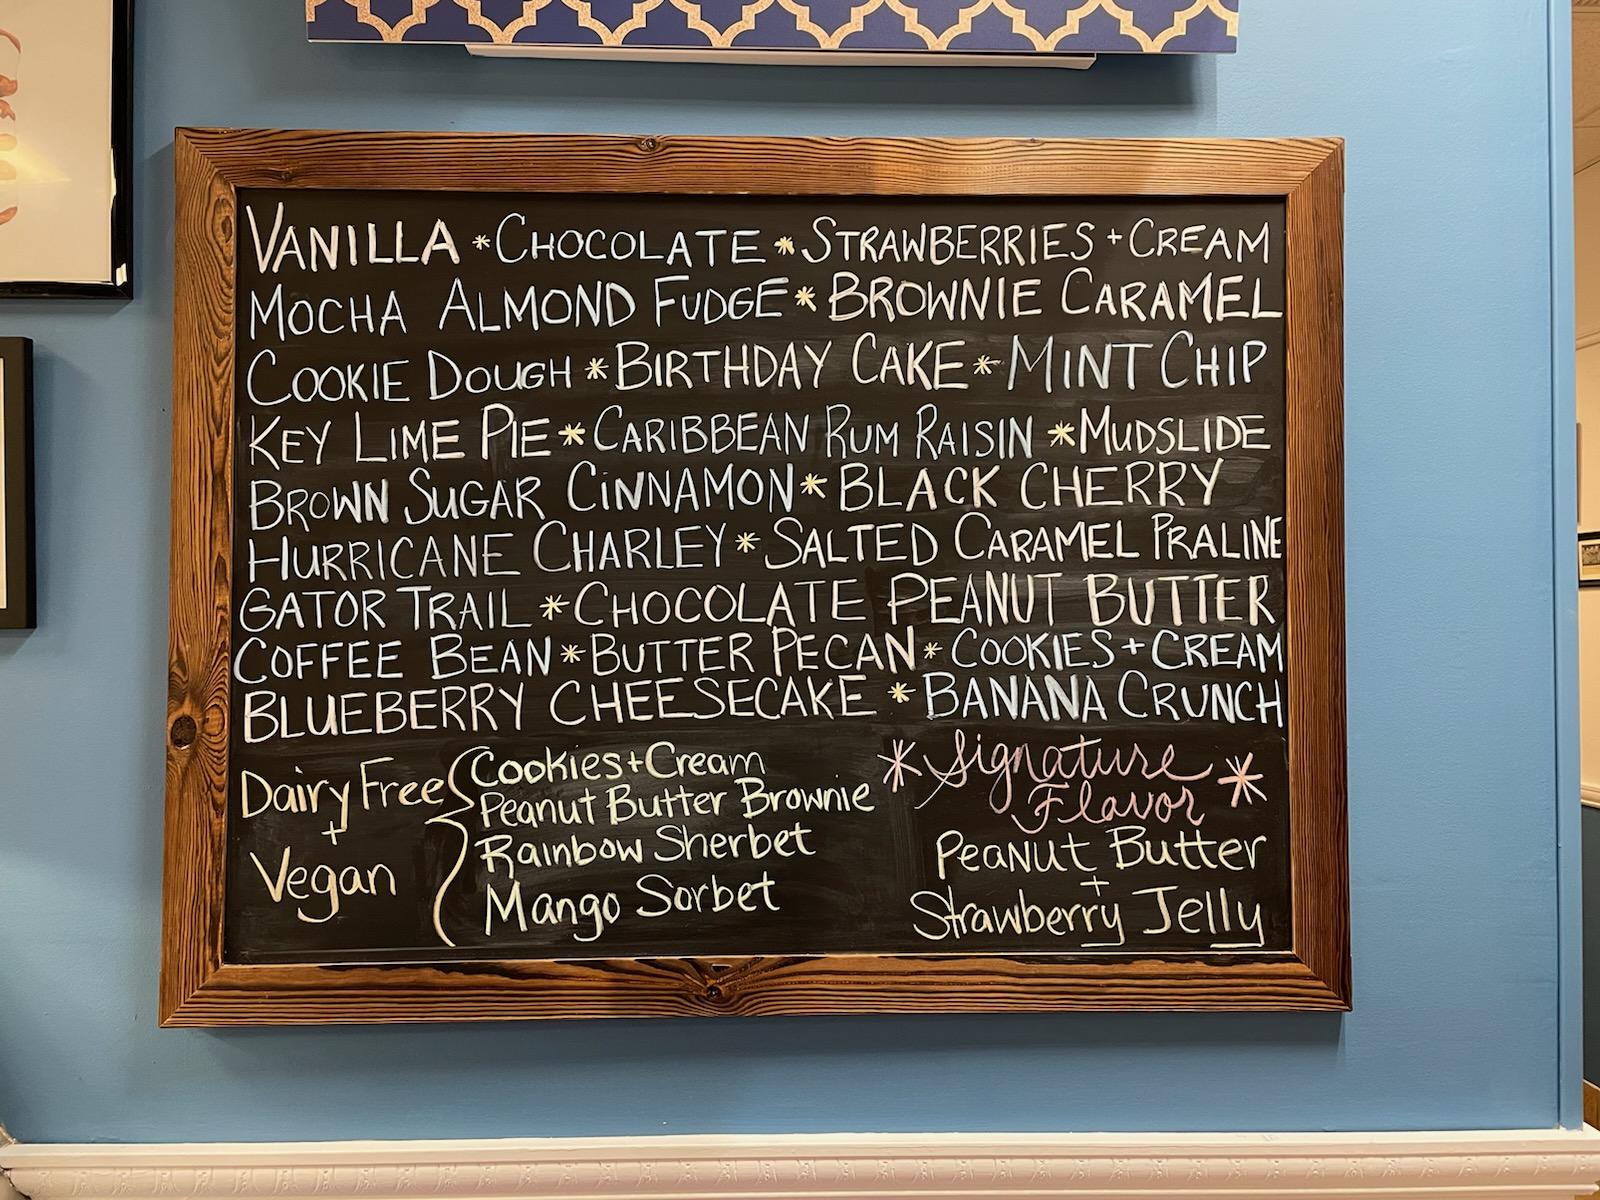 VANILLA * CHOCOLATE * STRAWBERRIES + CREAM
MOCHA ALMOND FUDGE * BROWNIE CARAMEL
COOKIE DOUGH * BIRTHDAY CAKE * MINT CHIP
KEY LIME PIE * CARIBBEAN RUM RAISIN * MUDSLIDE
BROWN SUGAR CINNAMON * BLACK CHERRY
HURRICANE CHARLEY * SALTED CARAMEL PRALINE
GATOR TRAIL * CHOCOLATE PEANUT BUTTER
COFFEE BEAN * BUTTER PECAN * COOKIES + CREAM
BLUEBERRY CHEESECAKE * BANANA CRUNCH
Dairy Free
+
Vegan
Cookies + Cream
Peanut Butter Brownie
Rainbow Sherbet
Mango Sorbet
* Signature *
Flavor
Peanut Butter
+
Strawberry Jelly